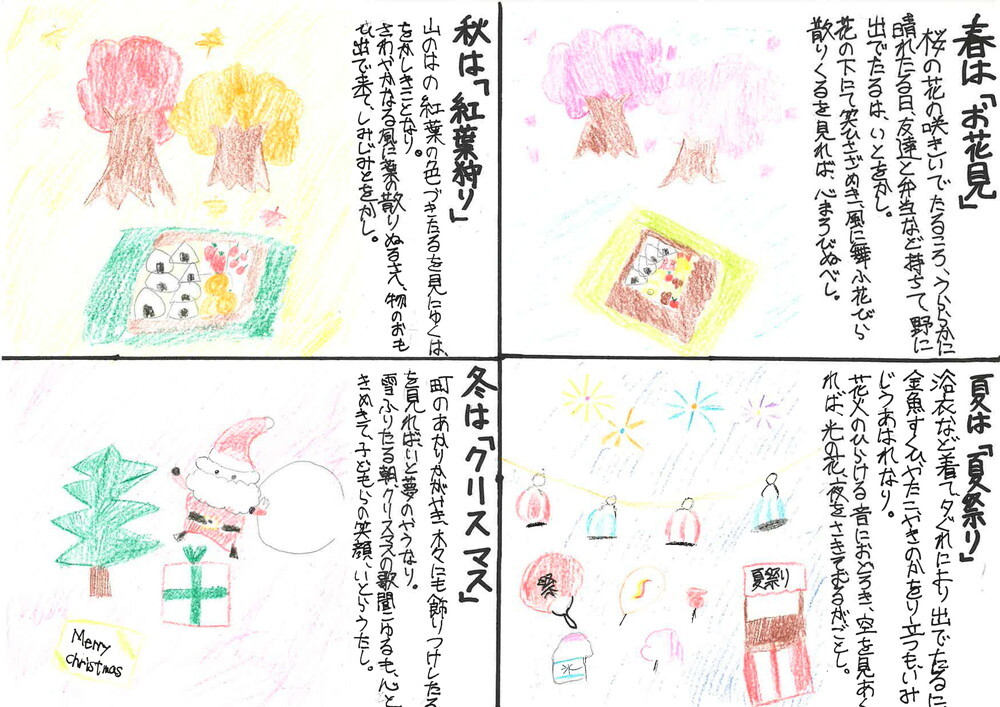 春は「お花見」
桜の花の咲きいでたるころ、うららかに
晴れたる日、友達と弁当など持ちて、野に
出でたるは、いとをかし。
花の下にて笑ひさざめき、風に舞ふ花びら
散りくるを見れば、心まうびぬべし。
夏は「夏祭り」
浴衣など着て、夕ぐれにより出でたるに
金魚すくひやたこやきのかをり立つも、いみ
じうあはれなり。
花火のひらける音におどろき、空を見あぐ
れば、光の花、夜をさきておるがごとし。
祭
氷
夏祭り
秋は「紅葉狩り」
山のはの紅葉の色づきたるを見にゆくは、
をかしきことなり。
さわやかなる風に葉の散りぬるさえ、物のおも
ひ出で来て、しみじみとをかし。
冬は「クリスマス」
町のあかりかがやき、木々にも飾りつけしたる
を見ればいと夢のやうなり。
雪ふりたる朝、クリスマスの歌聞こゆるも、心と
きめきて、子どもらの笑顔、いとらうたし。
Merry
christmas